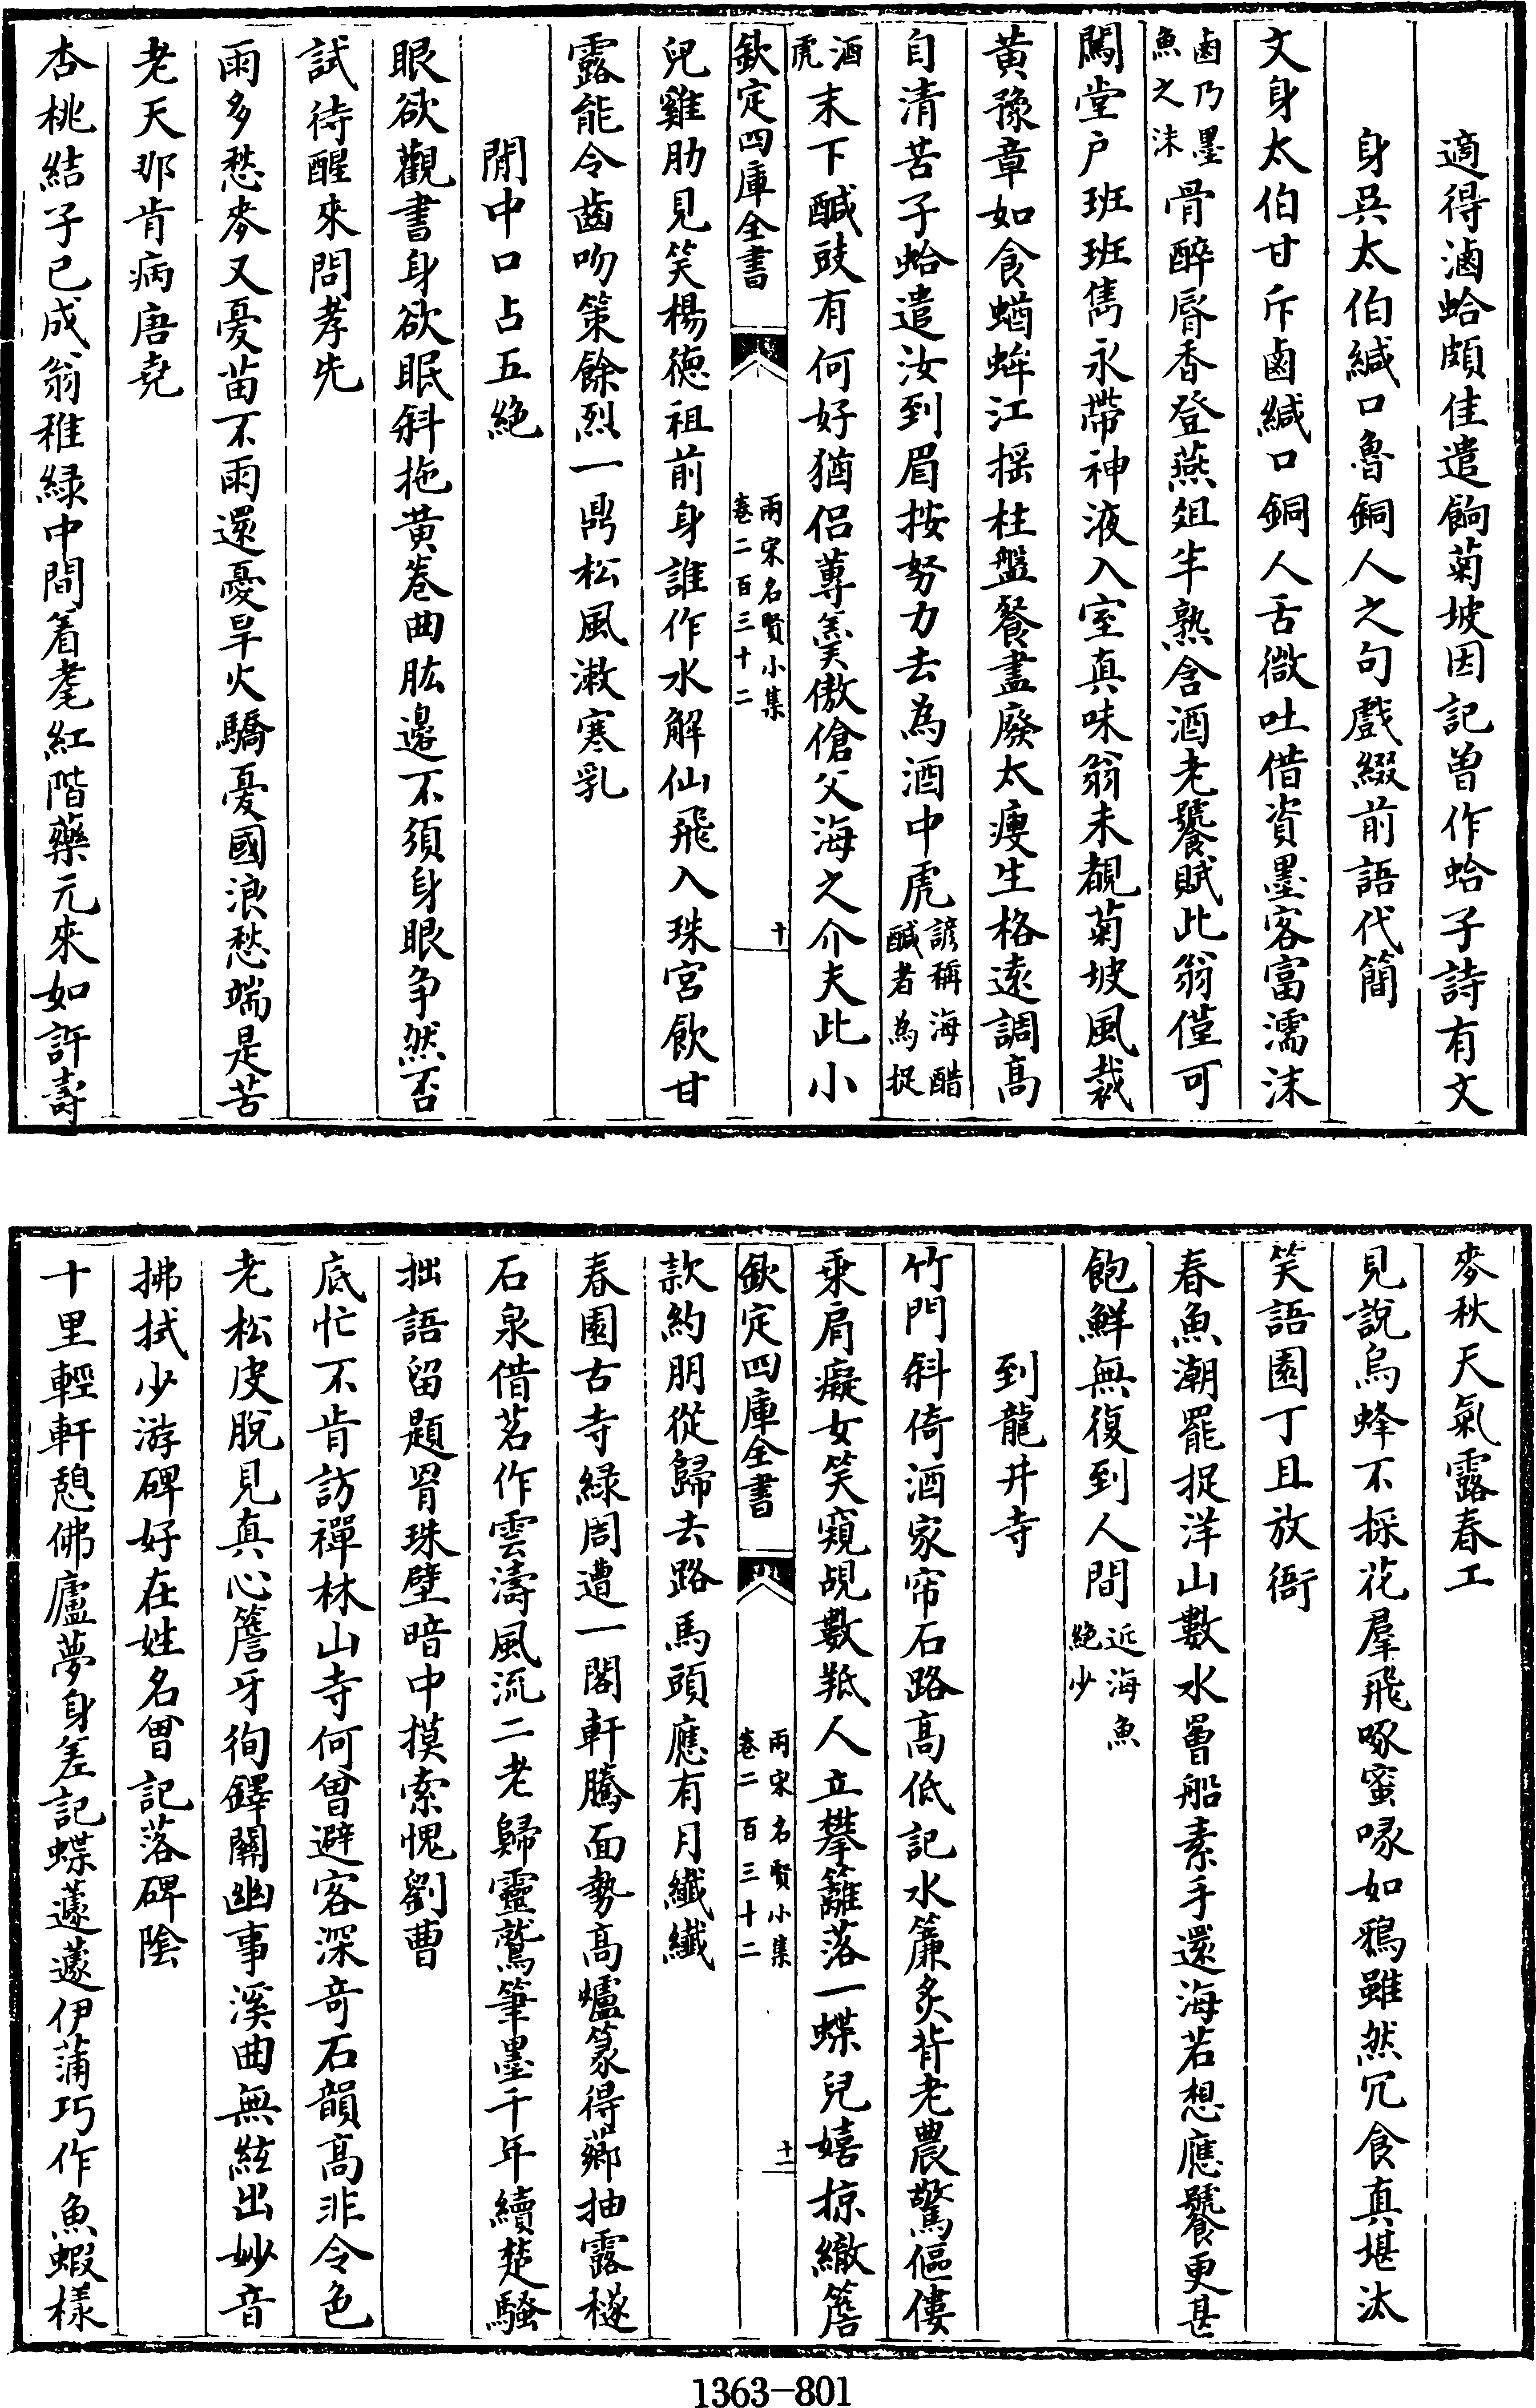 適得滷蛤頗佳遣餉菊坡因記曽作蛤子詩有文
身吳太伯緘口魯銅人之句戲綴前語代簡
文身太伯甘斥鹵緘口銅人舌微吐借資墨客富濡沫
鹵乃墨
魚之沫
骨醉脣香登燕俎半熟含酒老饕賦此翁僅可
闖堂户班班雋永帶神液入室真味翁未覩菊坡風裁
黄豫章如食蝤蛑江摇柱盤餐盡廢太瘦生格遠調高
自清苦子蛤遣汝到眉按努力去為酒中虎
諺稱海醋
醎者為捉
酒
虎
末下醎豉有何好猶侣蓴羹傲傖父海之介夫此小
欽定四庫全書
兩宋名賢小集
卷二百三十二
十
兒雞肋見笑楊德祖前身誰作水解仙飛入珠宮飲甘
露能令齒吻策餘烈一鼎松風漱寒乳
閒中口占五絶
眼欲觀書身欲眠斜拖黄卷曲肱邊不須身眼争然否
試待醒來問孝先
雨多愁麥又憂苗不雨還憂旱火驕憂國浪愁端是苦
老天那肯病唐堯
杏桃結子已成翁稚緑中間着耄紅階藥元來如許壽
麥秋天氣露春工
見說烏蜂不採花羣飛啄蜜喙如鴉雖然冗食真堪汰
笑語園丁且放衙
春魚潮罷捉洋山數水罾船素手還海若想應饕更甚
飽鮮無復到人間
近海魚
絶少
到龍井寺
竹門斜倚酒家帘石路高低記水簾炙背老農驚傴僂
乗肩癡女笑窺覘數羝人立攀籬落一蝶兒嬉掠繖簷
欽定四庫全書
兩宋名賢小集
卷二百三十二
十一
款約朋從歸去路馬頭應有月纖纖
春園古寺緑周遭一閣軒騰面勢高爐篆得薌抽露穟
石泉借茗作雲濤風流二老歸靈鷲筆墨千年續楚騷
拙語留題胃珠壁暗中摸索愧劉曹
底忙不肯訪禪林山寺何曾避客深竒石韻高非令色
老松皮脱見真心簷牙徇鐸關幽事溪曲無絃出妙音
拂拭少游碑好在姓名曾記落碑陰
十里輕軒憩佛廬夢身差記蝶蘧蘧伊蒲巧作魚蝦様
1363-801